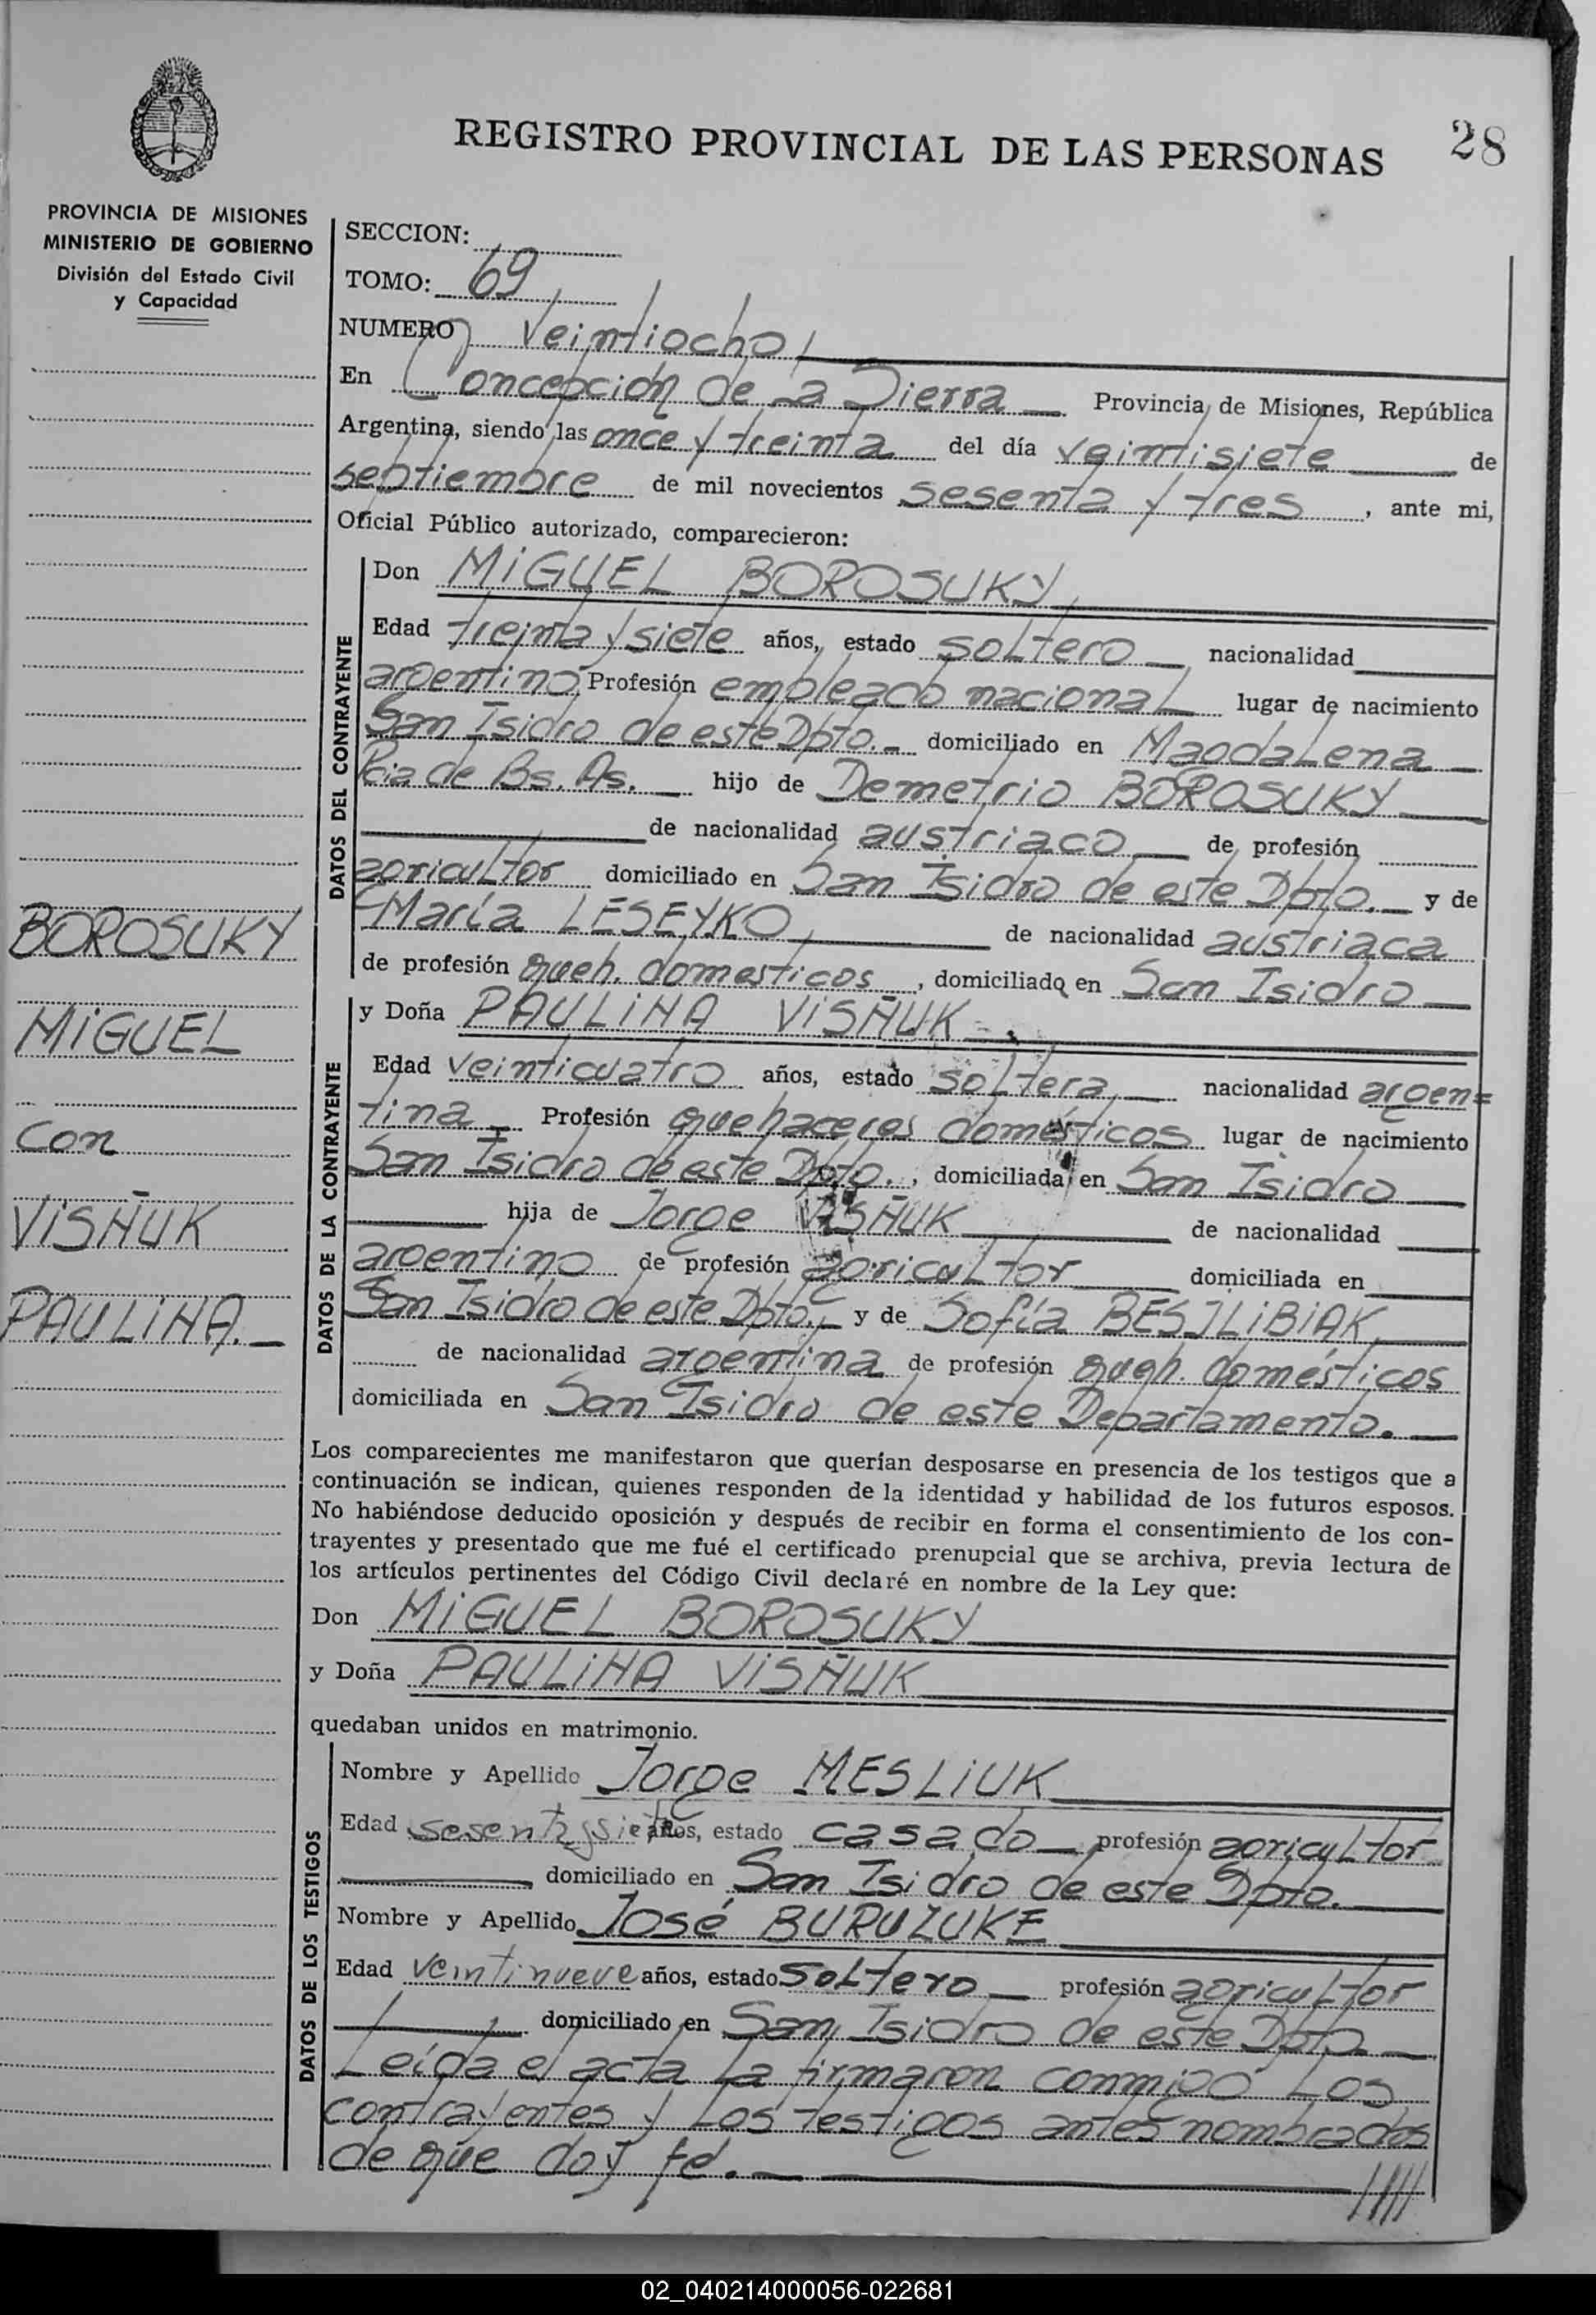 REGISTRO PROVINCIAL DE LAS PERSONAS
28
PROVINCIA DE MISIONES
MINISTERIO DE GOBIERNO
División del Estado Civil
y Capacidad
SECCION:
TOMO: 69
NUMERO Veintiocho
En Concepción de La Sierra Provincia de Misiones, República
Argentina, siendo las once y treinta del día veintisiete de
septiembre de mil novecientos sesenta y tres, ante mi,
Oficial Público autorizado, comparecieron:
DATOS DEL CONTRAYENTE
Don MIGUEL BOROSUKY
Edad treinta y siete años, estado soltero nacionalidad
argentino Profesión empleado nacional lugar de nacimiento
San Isidro de este Dpto. domiciliado en Magdalena
Pcia de Bs. As. hijo de Demetrio BOROSUKY
de nacionalidad austriaco de profesión
agricultor domiciliado en San Isidro de este Dpto. y de
María LESEYKO de nacionalidad austriaca
de profesión queh. domesticos, domiciliado en San Isidro
BOROSUKY
MIGUEL
con
VISÑUK
PAULINA.
DATOS DE LA CONTRAYENTE
y Doña PAULINA VISÑUK
Edad veinticuatro años, estado soltera nacionalidad argen=
tina Profesión quehaceres domésticos lugar de nacimiento
San Isidro de este Dpto., domiciliada en San Isidro
hija de Jorge VISÑUK de nacionalidad
argentino de profesión agricultor domiciliada en
San Isidro de este Dpto. y de Sofía BESJLIBIAK
de nacionalidad argentina de profesión queh. domésticos
domiciliada en San Isidro de este Departamento.
Los comparecientes me manifestaron que querían desposarse en presencia de los testigos que a
continuación se indican, quienes responden de la identidad y habilidad de los futuros esposos.
No habiéndose deducido oposición y después de recibir en forma el consentimiento de los con-
trayentes y presentado que me fué el certificado prenupcial que se archiva, previa lectura de
los artículos pertinentes del Código Civil declaré en nombre de la Ley que:
Don MIGUEL BOROSUKY
y Doña PAULINA VISÑUK
quedaban unidos en matrimonio.
DATOS DE LOS TESTIGOS
Nombre y Apellido Jorge MESLIUK
Edad sesenta y siete años, estado casado profesión agricultor
domiciliado en San Isidro de este Dpto.
Nombre y Apellido José BURUZUKE
Edad veintinueve años, estado soltero profesión agricultor
domiciliado en San Isidro de este Dpto
Leída el acta la firmaron conmigo los
contrayentes y los testigos antes nombrados
de que doy fé.
02_040214000056-022681